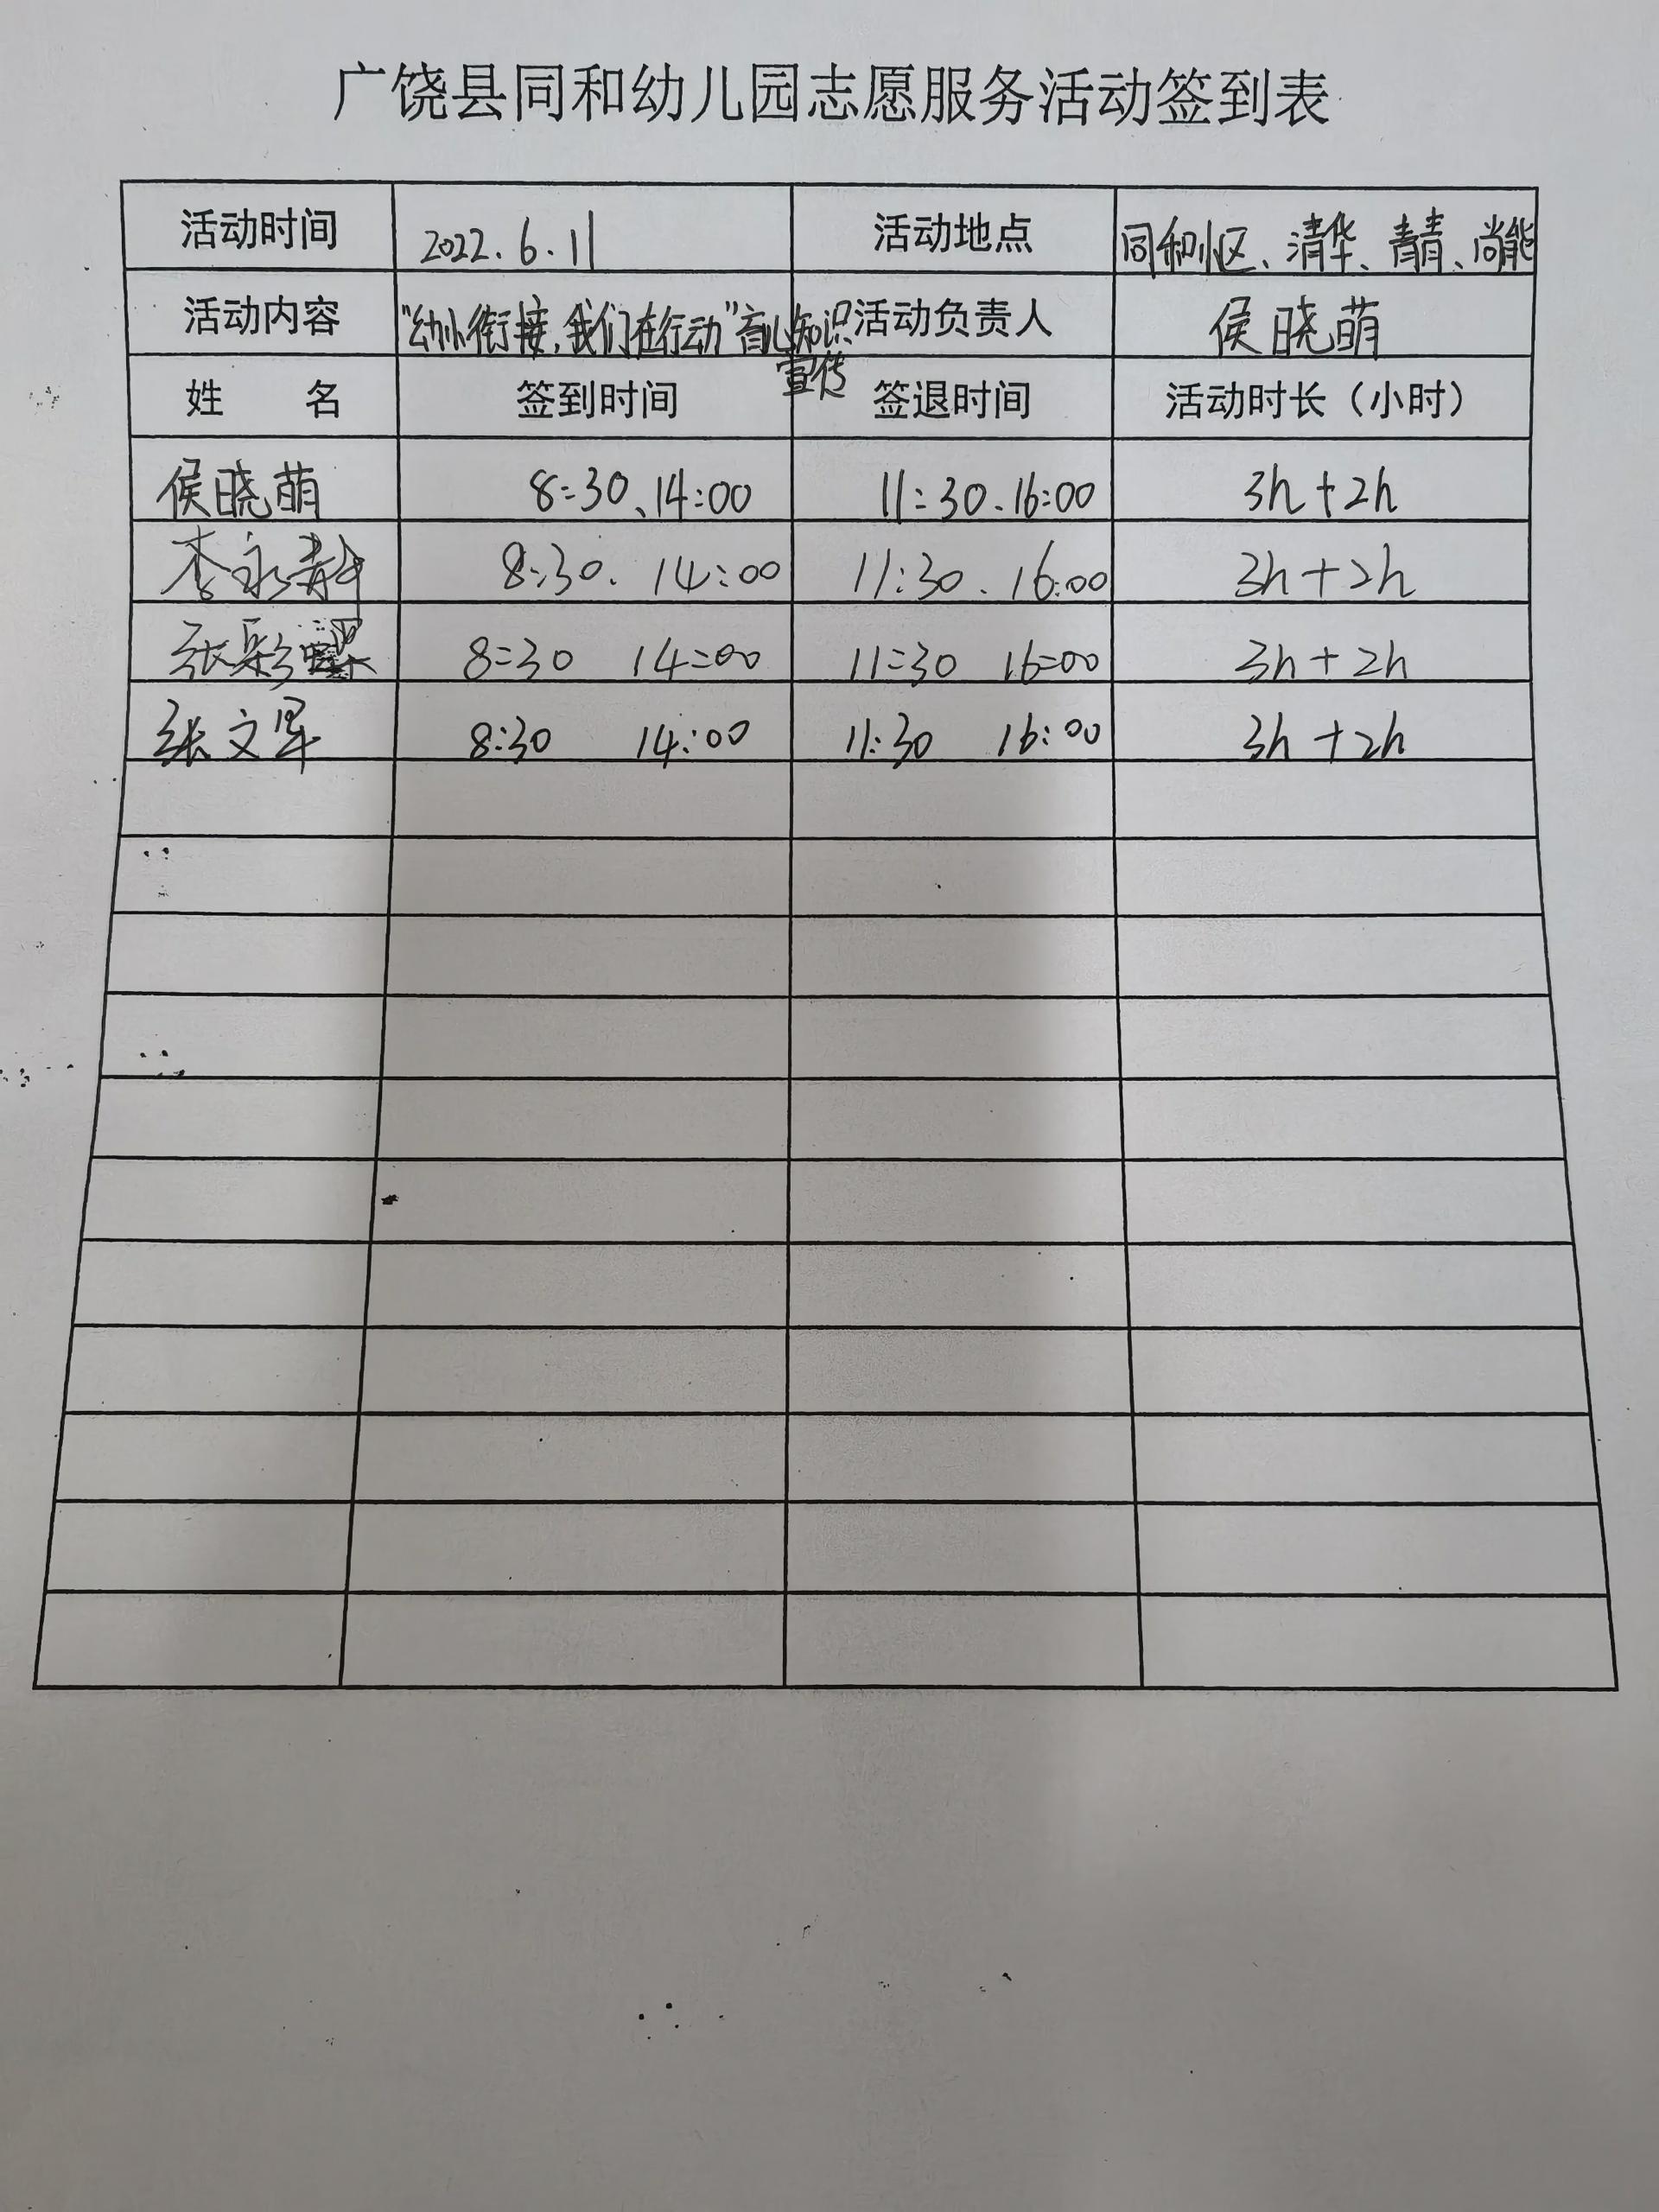 广饶县同和幼儿园志愿服务活动签到表
活动时间 2022.6.11 活动地点 同和小区、清华、青青、尚能
活动内容 "幼小衔接,我们在行动"育儿知识宣传 活动负责人 侯晓萌
姓 名 签到时间 签退时间 活动时长（小时）
侯晓萌 8:30、14:00 11:30、16:00 3h+2h
李永静 8:30、14:00 11:30、16:00 3h+2h
张彩 8:30 14:00 11:30 16:00 3h+2h
张文军 8:30 14:00 11:30 16:00 3h+2h